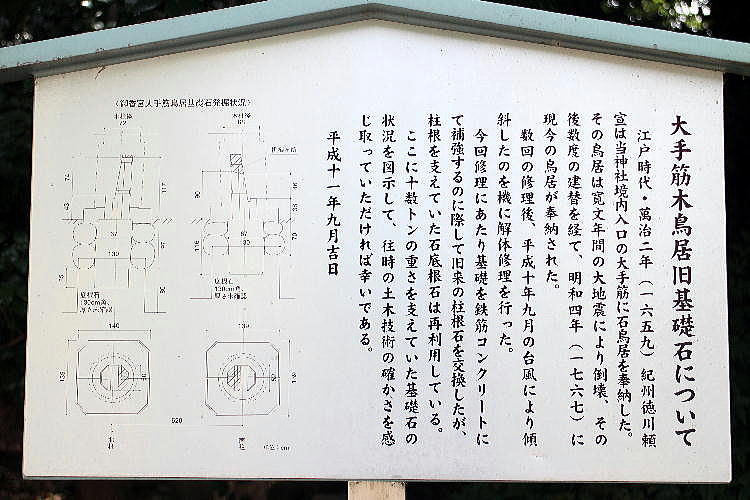 大手筋木鳥居旧基礎石について
江戸時代・萬治二年（一六五九）紀州徳川頼
宣は当神社境内入口の大手筋に石鳥居を奉納した。
その鳥居は寛文年間の大地震により倒壊、その
後数度の建替を経て、明和四年（一七六七）に
現今の鳥居が奉納された。
数回の修理後、平成十年九月の台風により傾
斜したのを機に解体修理を行った。
今回修理にあたり基礎を鉄筋コンクリートに
て補強するのに際して旧来の柱根石を交換したが、
柱根を支えていた石底根石は再利用している。
ここに十数トンの重さを支えていた基礎石の
状況を図示して、往時の土木技術の確かさを感
じ取っていただければ幸いである。
平成十一年九月吉日
〈御香宮大手筋鳥居基礎石発掘状況〉
木柱径
72
木柱径
68
117
90
67
130
67
130
底根石
130cm角、
厚さ未確認
底根石
130cm角、
厚さ未確認
140
139
520
北柱
南柱
単位：cm